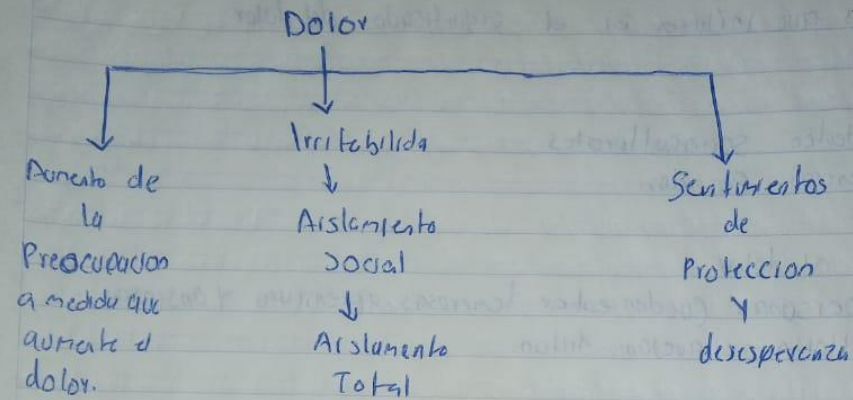 Dolor
Aumento de
la
Preocupacion
a medida que
aumente el
dolor.
Irritabilida
Aislamiento
Social
Aislamento
Total
Sentimientos
de
Proteccion
y
desesperanza